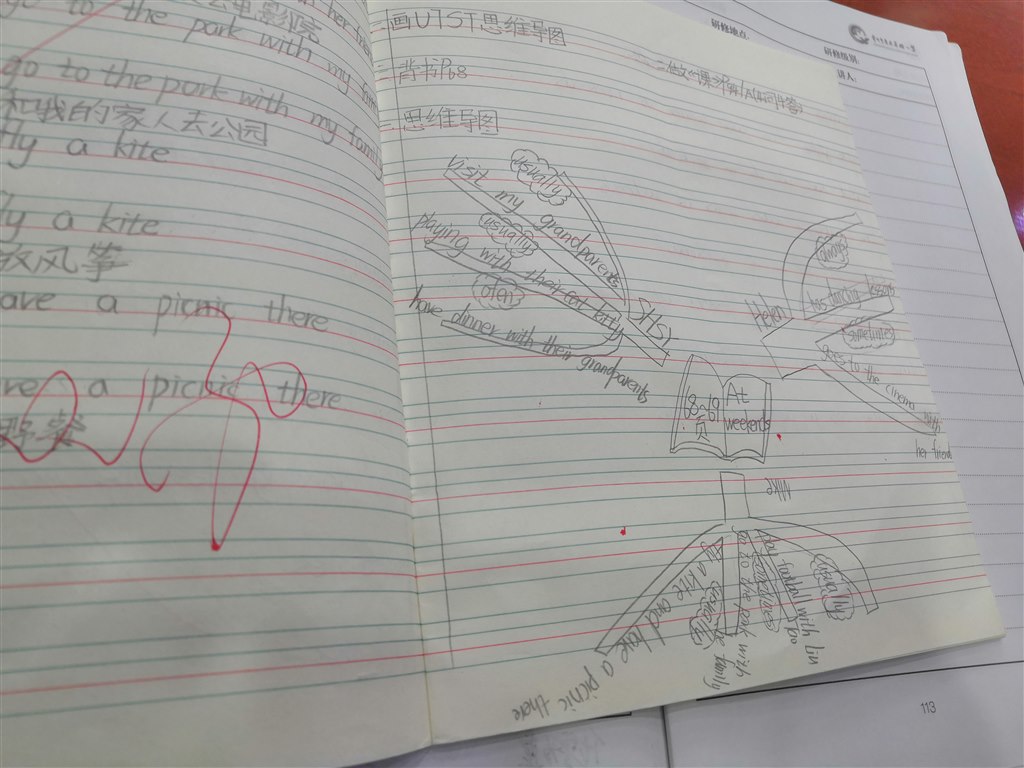 去电影院
go to the park with my fam
go to the park with my famil
和我的家人去公园
fly a kite
fly a kite
放风筝
have a picnic there
have a picnic there
野餐
画U1ST思维导图
背书P68
思维导图
usually
visit my grandparents
usually
playing with their cat
often
have dinner with their grandparents
68-69页
At weekends
Helen
always
has dancing lessons
sometimes
goes to the cinema with
her friends
Mike
usually
play football with Liu Tao
sometimes
go to the park with
family
fly a kite and have a picnic there
研修地点:
研修级别:
113